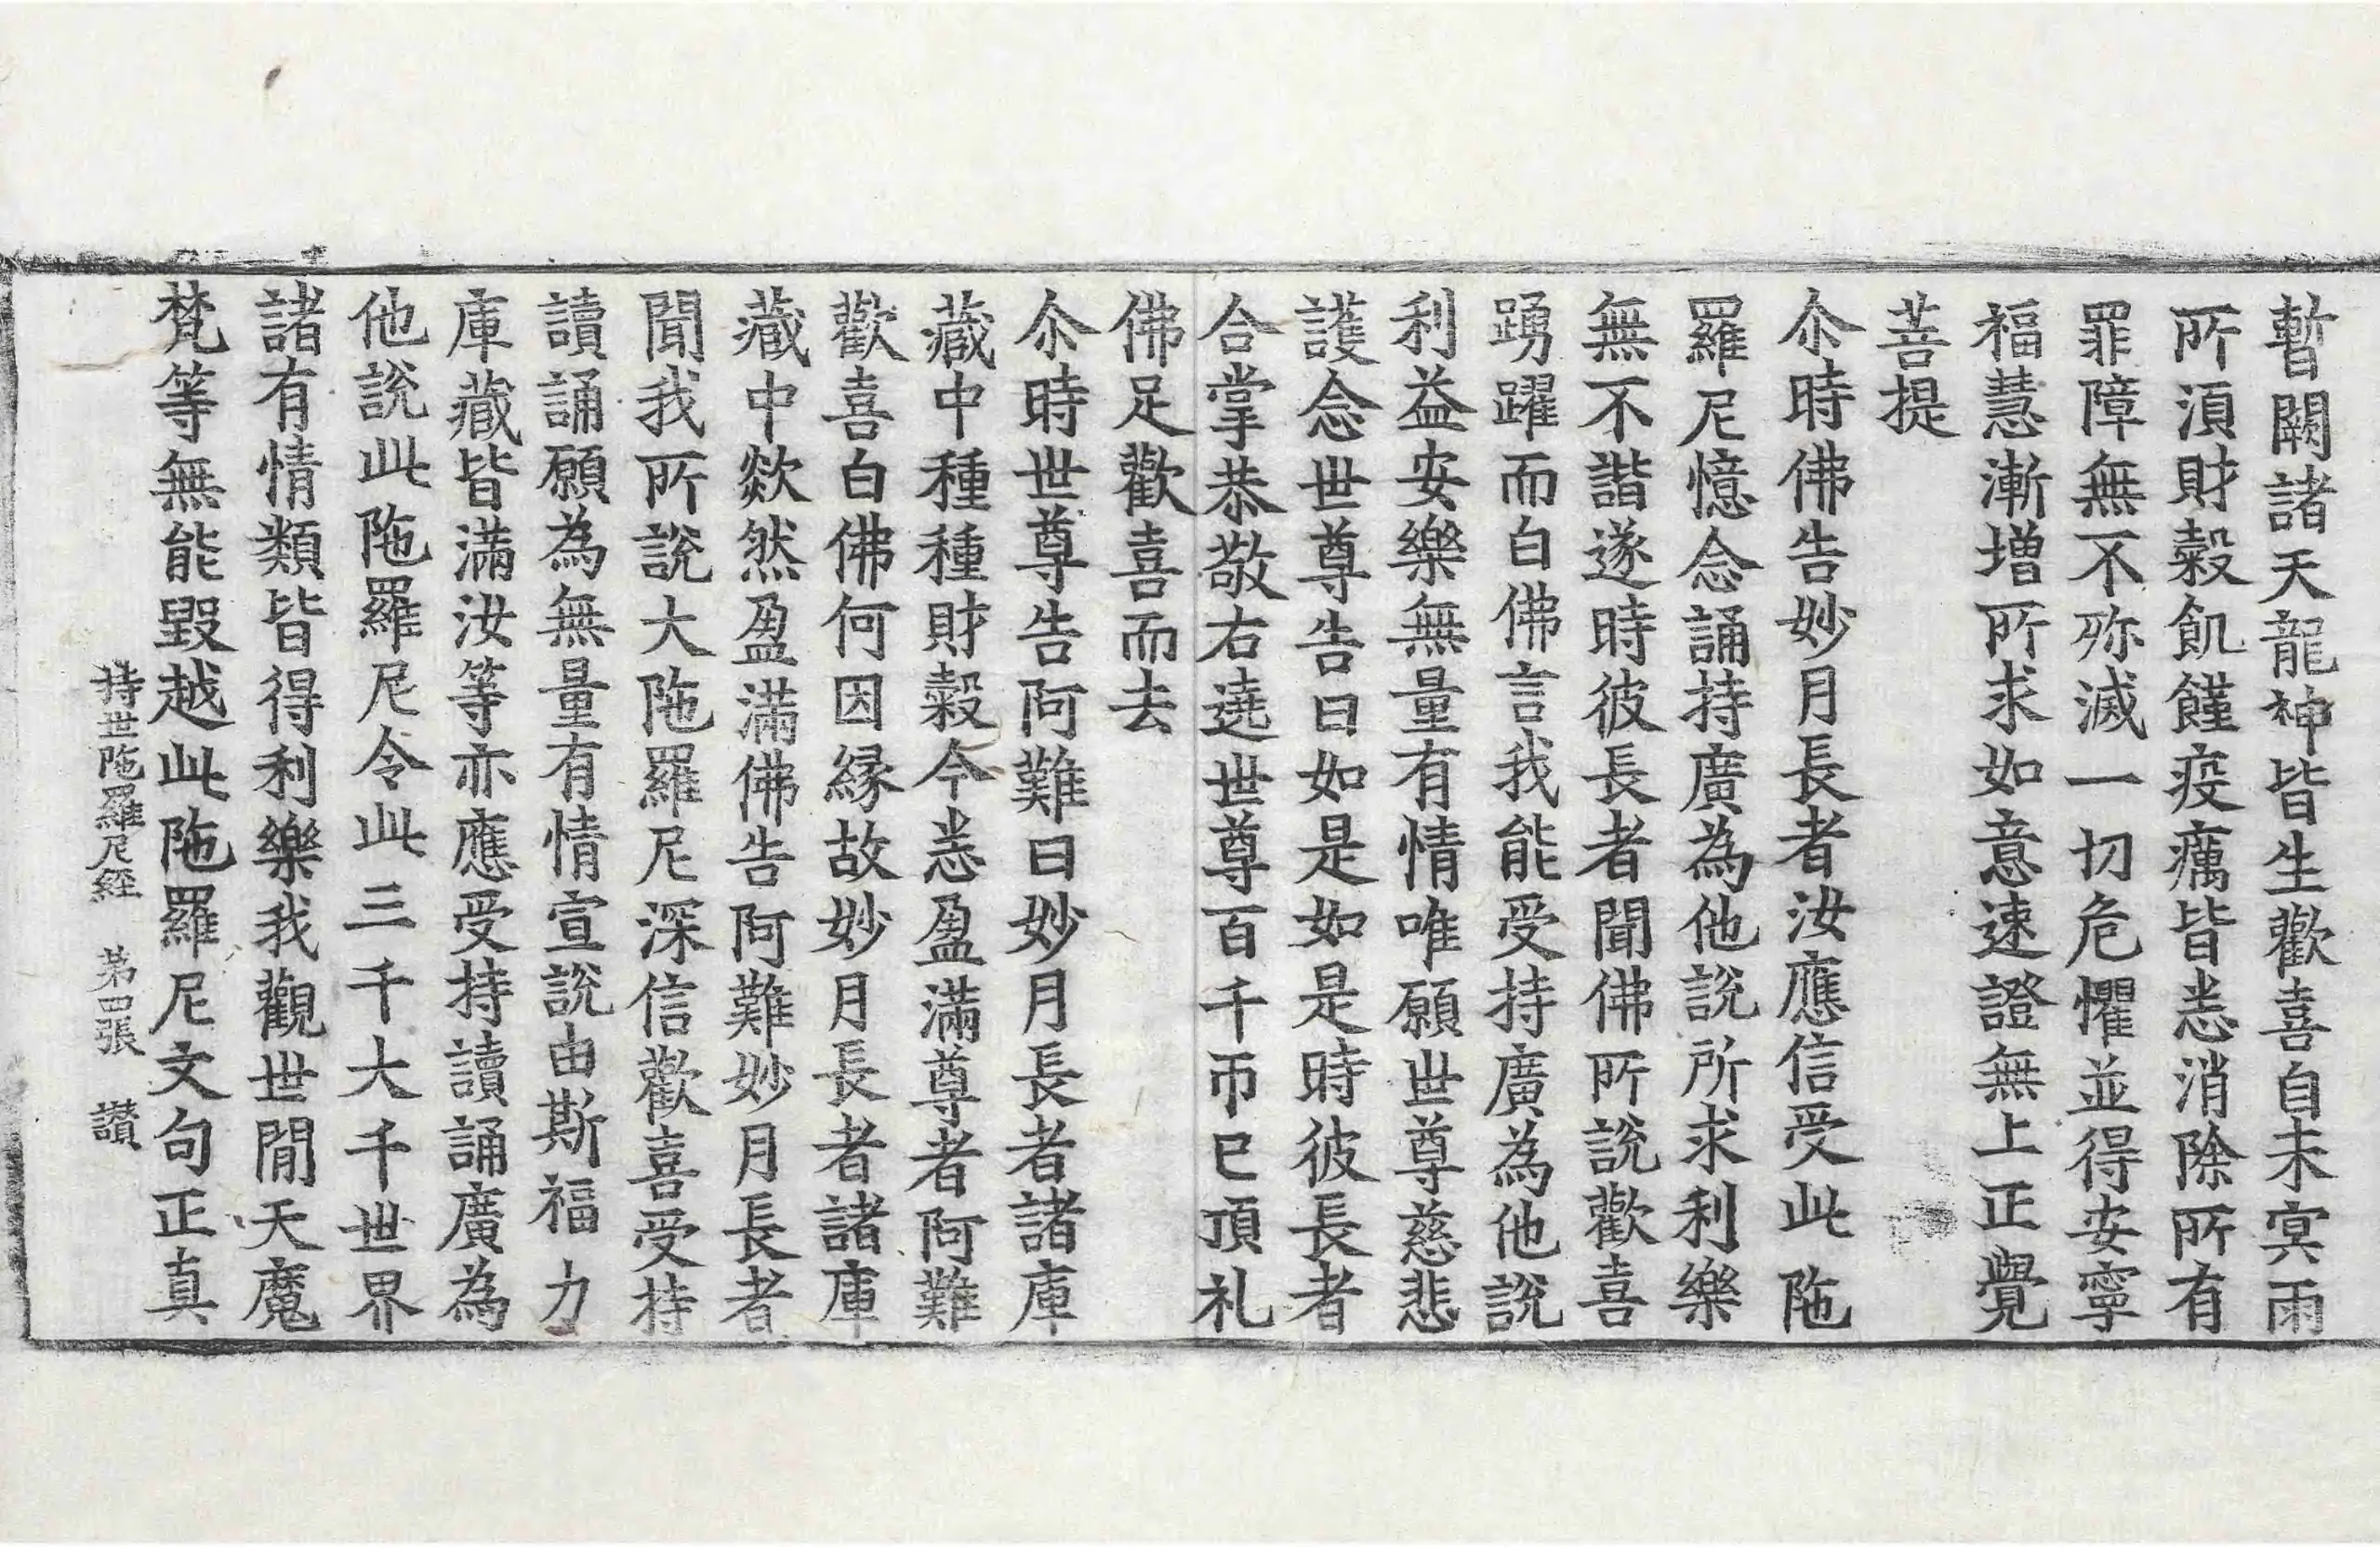 暫闕諸天龍神皆生歡喜自未㝠雨
所湏財穀飢饉疫癘皆悉消除所有
罪障無不殄滅一切危懼並得安寧
福慧漸增所求如意速證無上正覺
菩提
尒時佛告妙月長者汝應信受此陁
羅尼憶念誦持廣為他說所求利樂
無不諧遂時彼長者聞佛所說歡喜
踴躍而白佛言我能受持廣為他說
利益安樂無量有情唯願世尊慈悲
護念世尊告曰如是如是時彼長者
合掌恭敬右遶世尊百千帀已頂礼
佛足歡喜而去
尒時世尊告阿難曰妙月長者諸庫
藏中種種財穀今悉盈滿尊者阿難
歡喜白佛何因緣故妙月長者諸庫
藏中欻然盈滿佛告阿難妙月長者
聞我所說大陁羅尼深信歡喜受持
讀誦願為無量有情宣說由斯福力
庫藏皆滿汝等亦應受持讀誦廣為
他說此陁羅尼令此三千大千世界
諸有情類皆得利樂我觀世閒天魔
梵等無能毀越此陁羅尼文句正真
持世陁羅尼経　第四張　讃